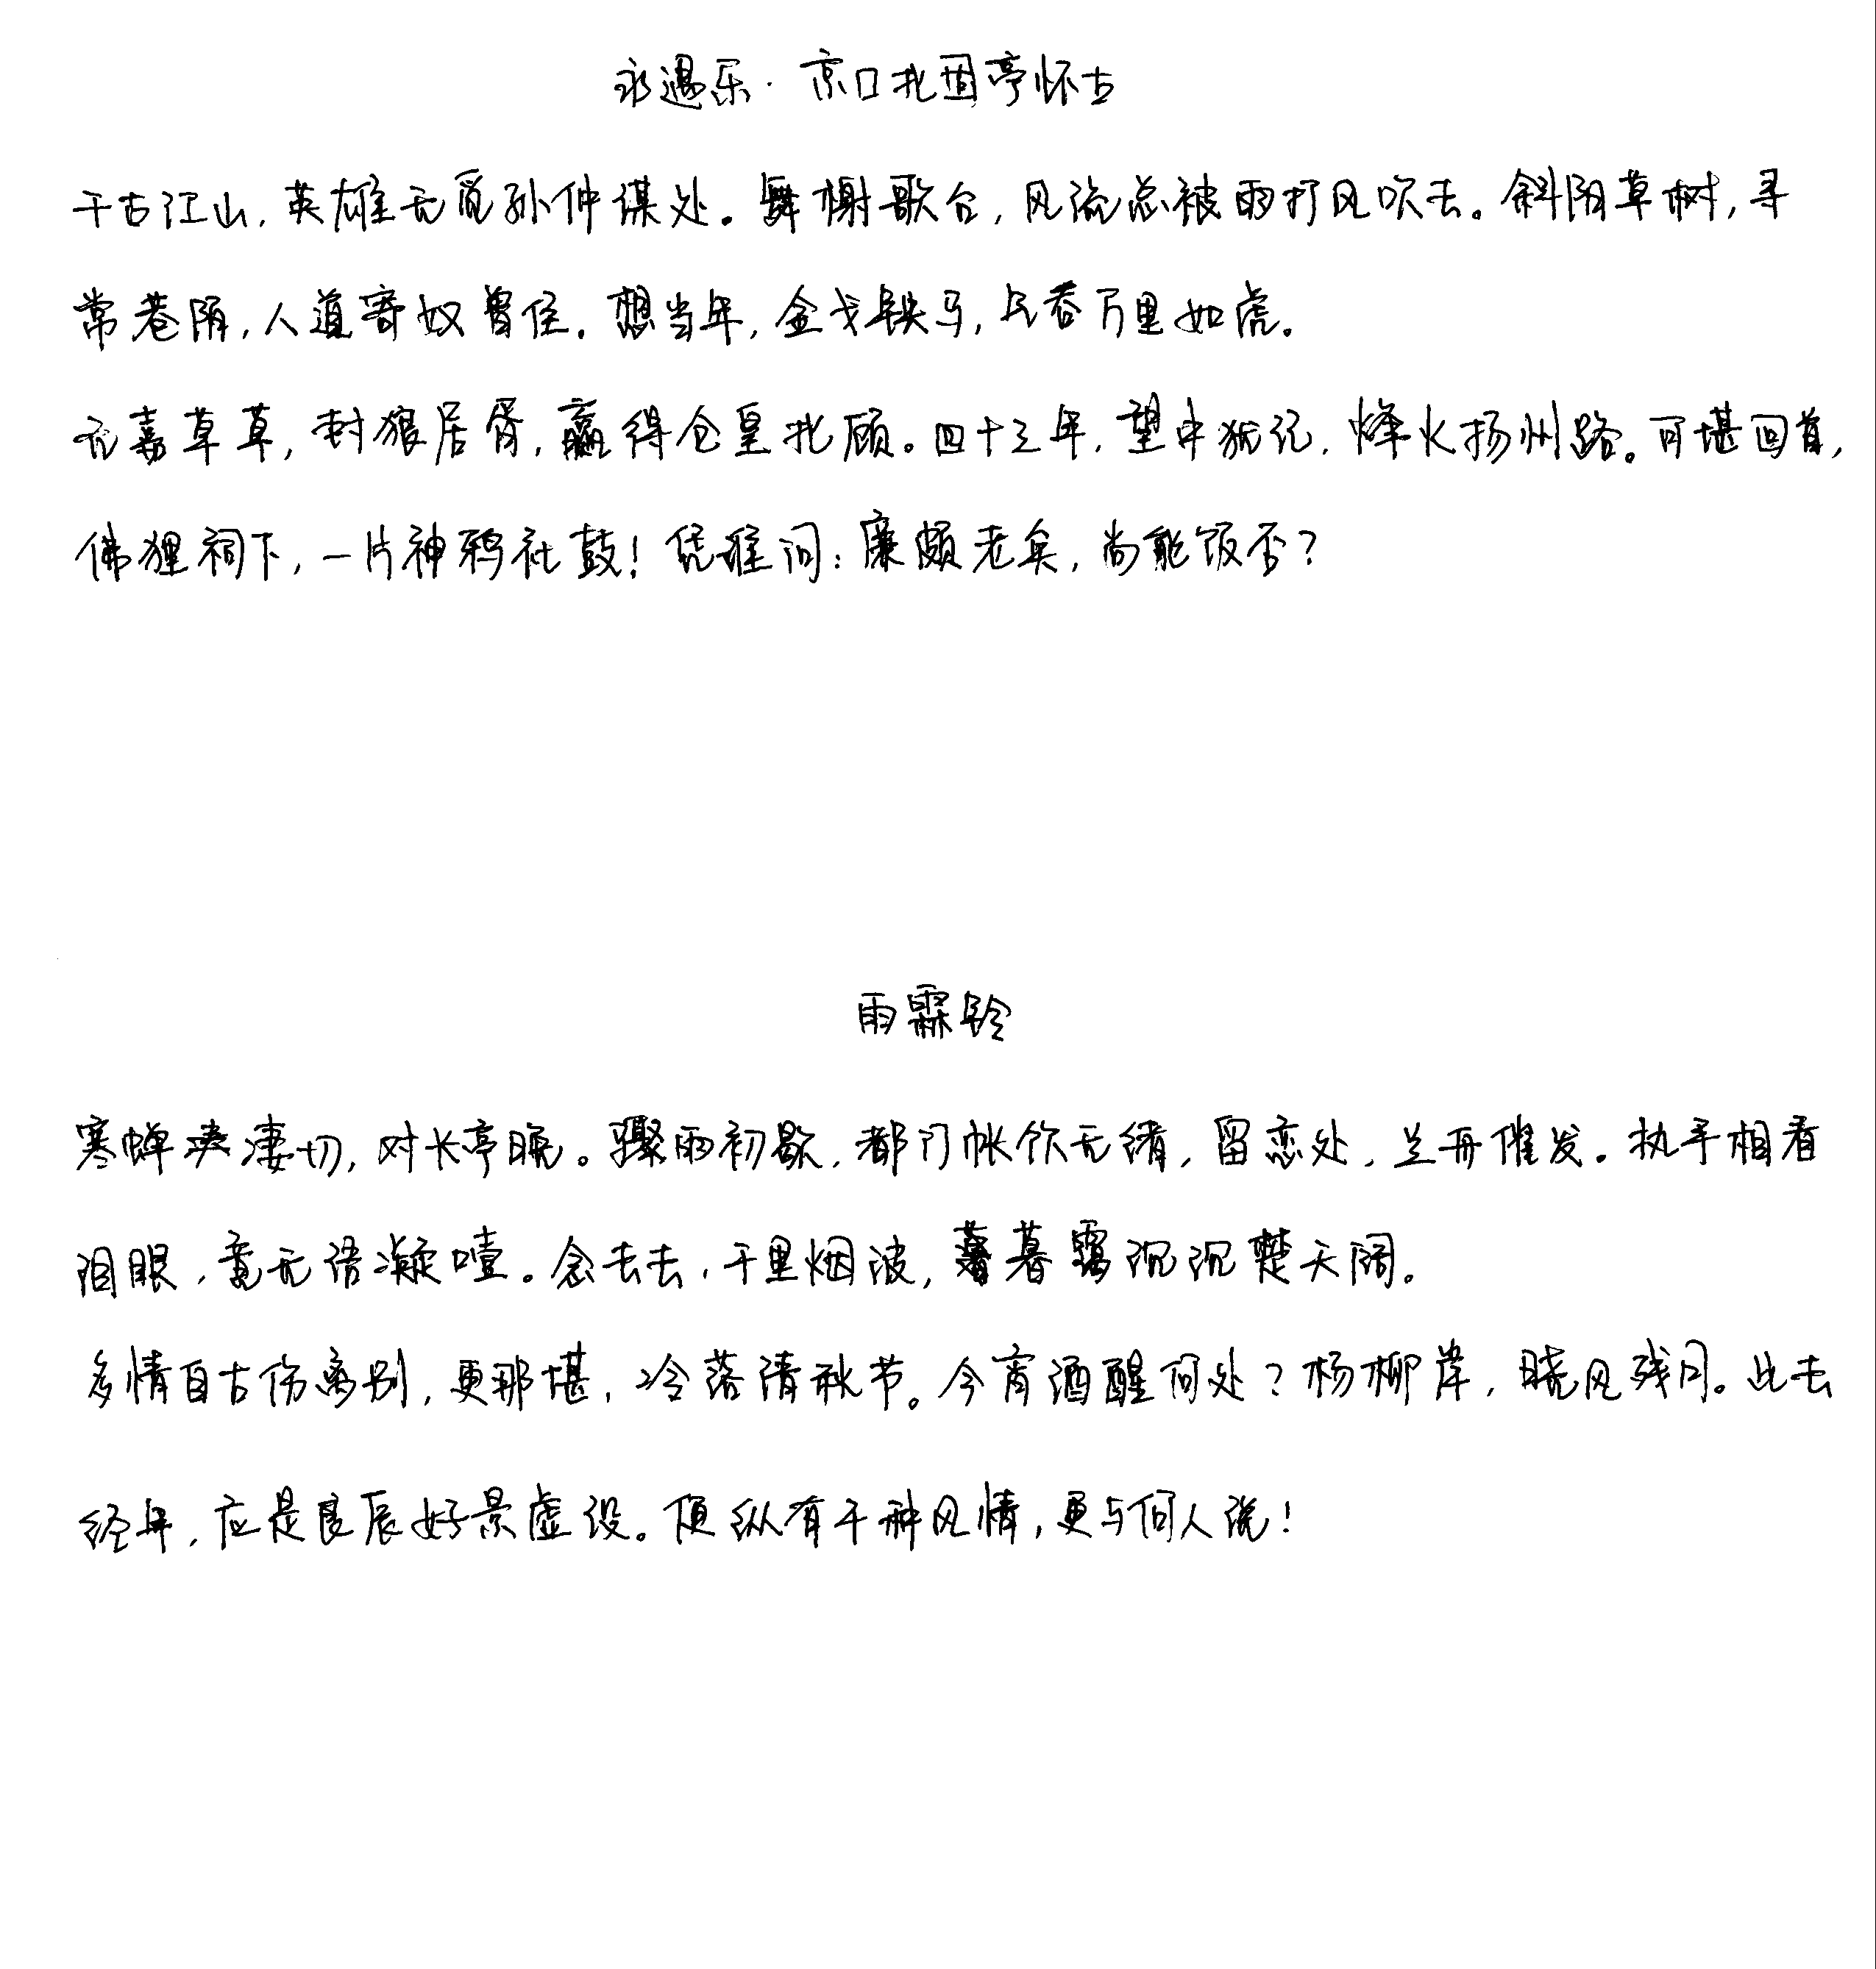 永遇乐·京口北固亭怀古
千古江山,英雄无觅孙仲谋处。舞榭歌台,风流总被雨打风吹去。斜阳草树,寻
常巷陌,人道寄奴曾住。想当年,金戈铁马,气吞万里如虎。
元嘉草草,封狼居胥,赢得仓皇北顾。四十三年,望中犹记,烽火扬州路。可堪回首,
佛狸祠下,一片神鸦社鼓!凭谁问:廉颇老矣,尚能饭否?
雨霖铃
寒蝉凄切,对长亭晚。骤雨初歇,都门帐饮无绪,留恋处,兰舟催发。执手相看
泪眼,竟无语凝噎。念去去,千里烟波,暮霭沉沉楚天阔。
多情自古伤离别,更那堪,冷落清秋节。今宵酒醒何处?杨柳岸,晓风残月。此去
经年,应是良辰好景虚设。便纵有千种风情,更与何人说!